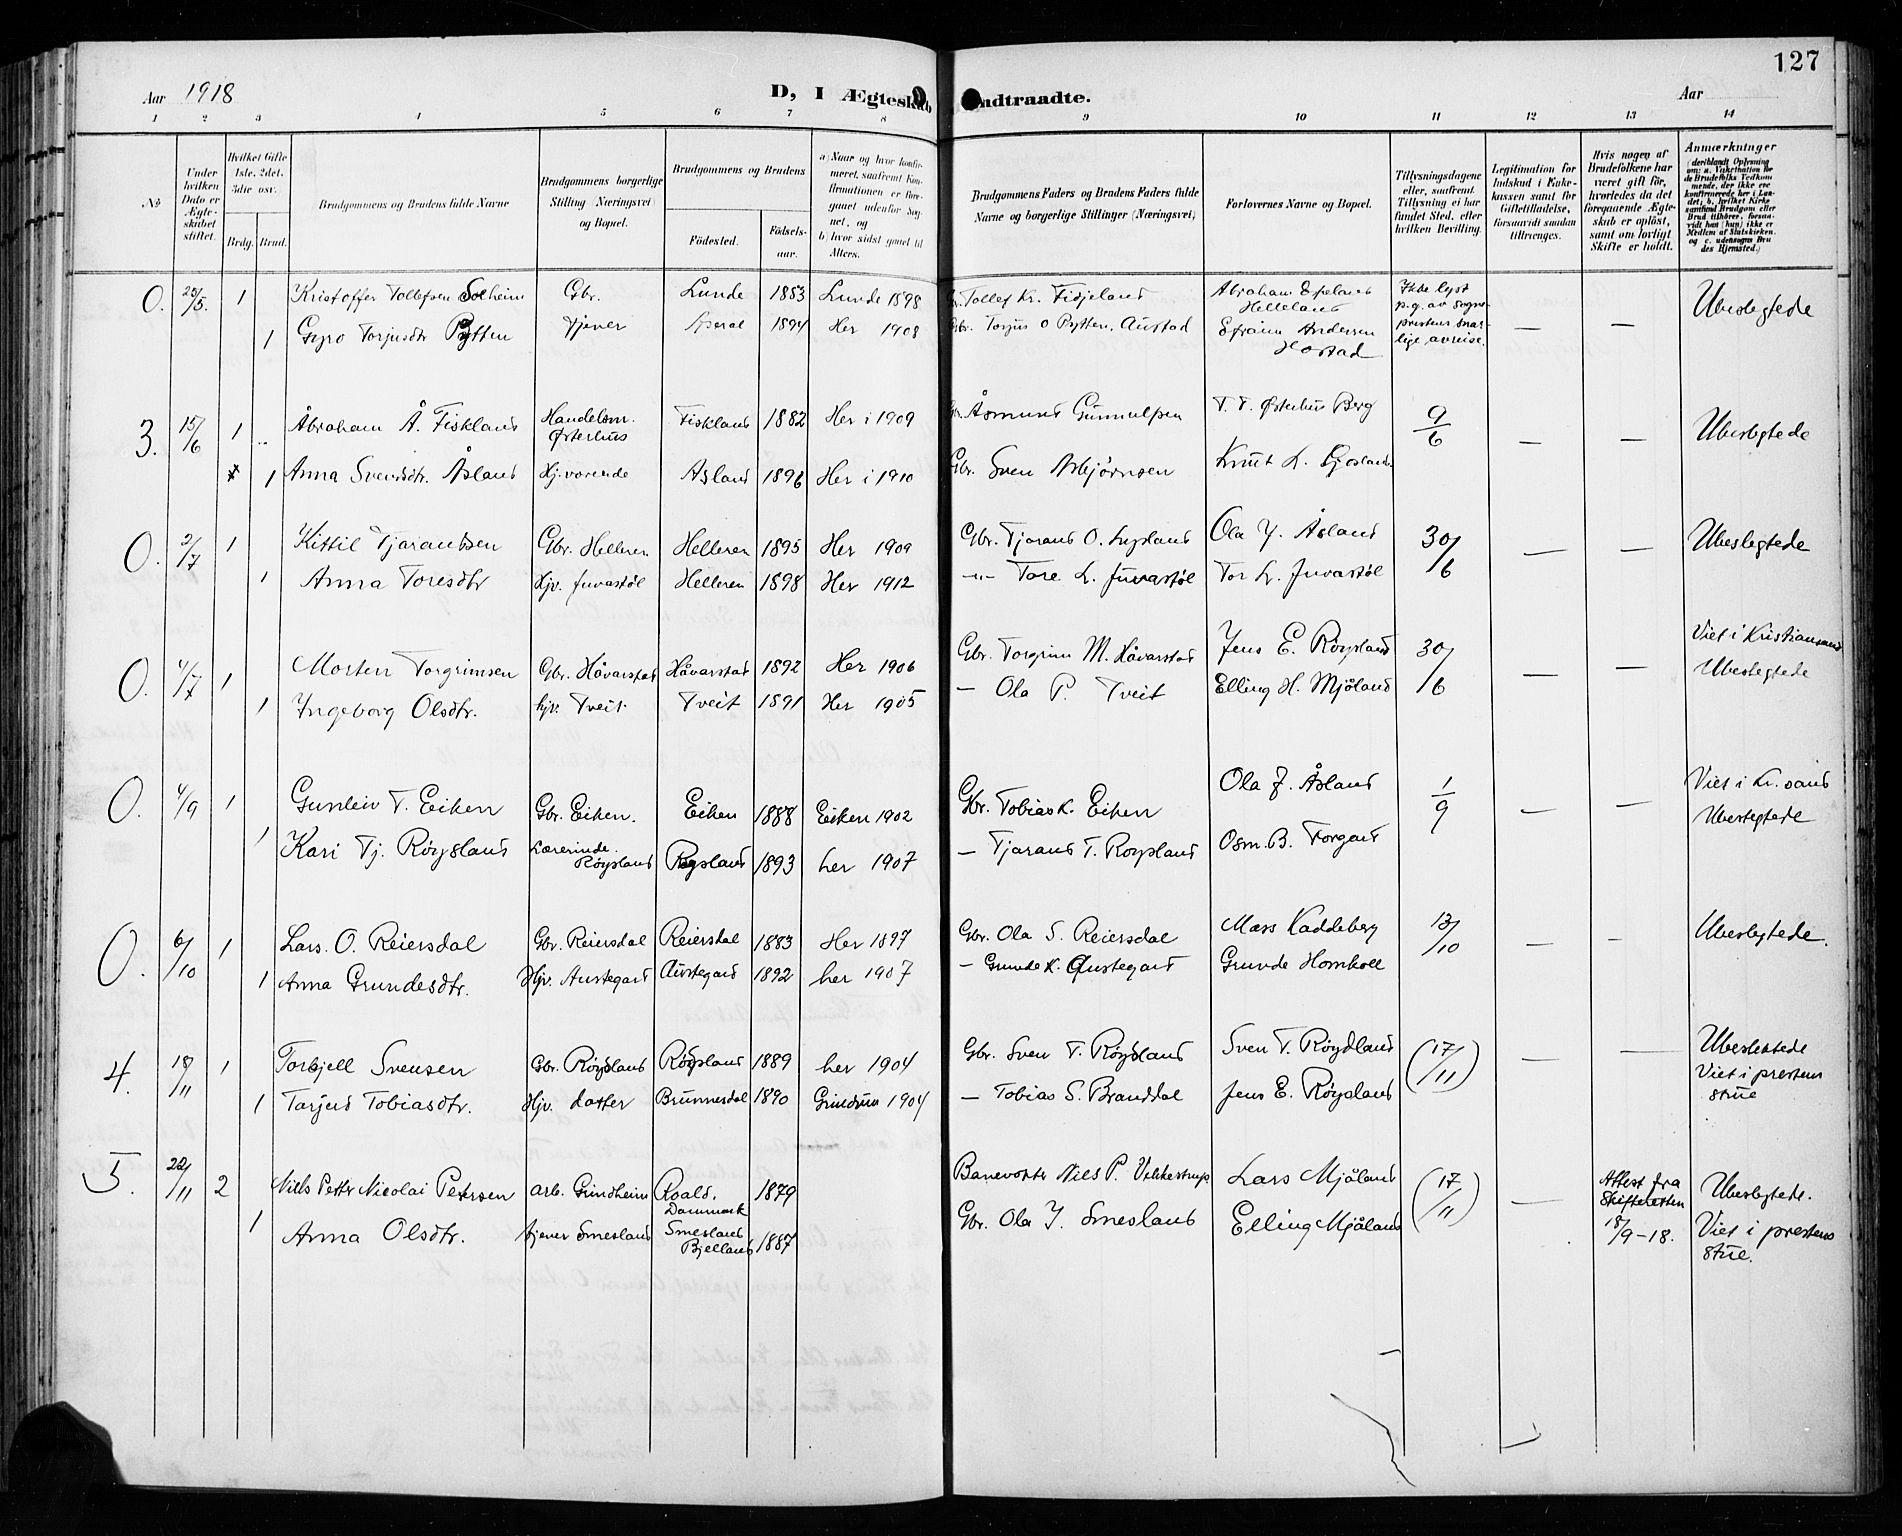 127
Aar 1918
D, I Ægteskab Indtraadte.
Aar
1 2 3 4 5 6 7 8 9 10 11 12 13 14
No
Under hvilken Dato er Ægteskabet stiftet.
Hvilket Gifte 1ste, 2det, 3die osv.
Brdg. Brud.
Brudgommens og Brudens fulde Navne
Brudgommens borgerlige Stilling (Næringsvei) og Bopæl.
Brudgommens og Brudens
Fødested.
Fødselsaar.
a) Naar og hvor konfirmeret, saafremt Konfirmationen er foregaaet udenfor Sognet, og
b) hvor sidst gaaet til Alters.
Brudgommens Faders og Brudens Faders fulde Navne og borgerlige Stillinger (Næringsvei)
Forlovernes Navne og Bopæl.
Tillysningsdagene eller, saafremt Tillysning ei har fundet Sted, efter hvilken Bevilling.
Legitimation for Indskud i Enkekassen samt for Giftetilladelse, forsaavidt saadan tiltrænges.
Hvis nogen af Brudefolkene har været gift før, hvorledes da det foregaaende Ægteskab er opløst, samt om lovligt Skifte er holdt.
Anmærkninger
0. 25/5. 1 Kristoffer Tollefsen Solheim Gbr. Lunde 1883 Lunde 1898 Gbr. Tollef Kr. Fidjeland Abraham Efteland Helleland Ikke lyst p.g. av sogneprestens snarlige avreise. Ubeslegtede
1 Gyro Torjusdtr Pytten Tjener Åseral 1894 Her 1908 Gbr. Torjus O Pytten, Austad Efraim Andersen Hostad — —
3. 15/6 1 Åbraham Å. Fiskland Handelsm. Østerhus Fiskland 1882 Her i 1909 Gbr. Åsmund Gunnulfsen T. T. Østerhus Berg 9/6 — — Ubeslegtede
1 Anna Svensdtr. Åsland Hj. varende Åsland 1896 Her i 1910 Gbr. Sven Asbjørnsen Knut L. Gjosland
0. 2/7 1 Kittil Tjarandsen Gbr. Helleren Helleren 1895 Her 1909 Gbr. Tjarand O. Lugland Ola J. Åsland 30/6 — — Ubeslegtede
1 Anna Toresdtr Hjv. Juvastøl Helleren 1898 Her 1912 -"- Tore L. Juvastøl Tor L. Juvastøl
0. 4/7 1 Morten Torgrimsen Gbr. Håvarstad Håvarstad 1892 Her 1906 Gbr. Torgrim M. Håvarstad Jens E. Røysland 30/6 — — Viet i Kristiansand Ubeslegtede
1 Ingeborg Olsdtr. hjv. Tveit. Tveit 1891 Her 1905 — Ola P. Tveit Elling H. Mjåland
0. 4/9 1 Gunleiv T. Eiken Gbr. Eiken. Eiken 1888 Eiken 1902 Gbr. Tobias K. Eiken Ola J. Åsland 1/9 — — Viet i Kr. sand Ubeslegtede
1 Kari Tj. Røysland Lærerinde. Røysland Røysland 1893 her 1907 — Tjarand T. Røysland Osm. B. Torgard
0. 6/10 1 Lars. O. Reiersdal Gbr. Reiersdal Reiersdal 1883 Her 1897 Gbr. Ola S. Reiersdal Mass Kaddeberg 13/10 — — Ubeslegtede.
1 Anna Grundesdtr. Hjv. Austegard Austegard 1892 her 1907 — Grunde K. Austegard Grunde Homkoll
4. 18/11 1 Torkjell Svensen Gbr. Røysland Røysland 1889 her 1904 Gbr. Sven T. Røysland Sven T. Røysland (17/11) — — Ubeslektede Viet i prestens stue
1 Tarjerd Tobiasdtr. Hjv. datter Brunnesdal 1890 Grindum 1904 — Tobias S. Branddal Jens E. Røysland
5. 22/11 2 Niels Petter Nicolai Petersen arb. Grindheim Roald. Danmark 1879 Banevokter Niels P. Vekkestrup Lars Mjåland (17/11) — Attest fra Skifteretten 18/9-18. Ubeslegtede. Viet i prestens stue.
1 Anna Olsdtr. tjener Smesland Smesland Bjelland 1887 Gbr. Ola J. Smesland Elling Mjåland